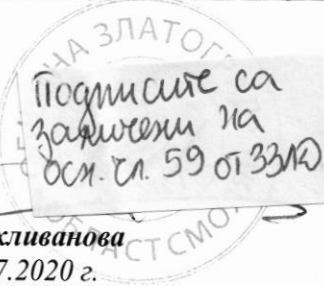 НА ЗЛАТОГ
Подписите са
заличени на
осн. чл. 59 от ЗЗЛД
ОБЛАСТ СМО
кливанова
7.2020 г.